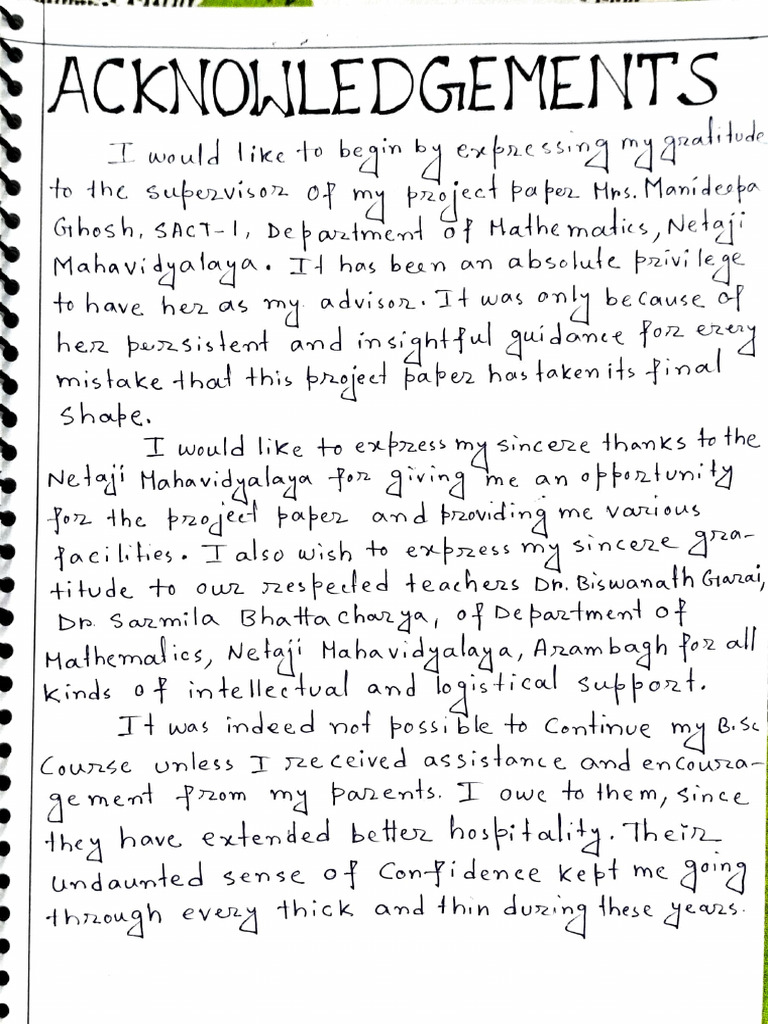 ACKNOWLEDGEMENTS
I would like to begin by expressing my gratitude
to the supervisor of my project paper Mrs. Manideepa
Ghosh, SACT-1, Department of Mathematics, Netaji
Mahavidyalaya. It has been an absolute privilege
to have her as my advisor. It was only because of
her persistent and insightful guidance for every
mistake that this project paper has taken its final
shape.
I would like to express my sincere thanks to the
Netaji Mahavidyalaya for giving me an opportunity
for the project paper and providing me various
facilities. I also wish to express my sincere gra-
titude to our respected teachers Dr. Biswanath Garai,
Dr. Sarmila Bhattacharya, of Department of
Mathematics, Netaji Mahavidyalaya, Arambagh for all
kinds of intellectual and logistical support.
It was indeed not possible to continue my B.Sc
Course unless I received assistance and encoura-
gement from my parents. I owe to them, since
they have extended better hospitality. Their
undaunted sense of confidence kept me going
through every thick and thin during these years.